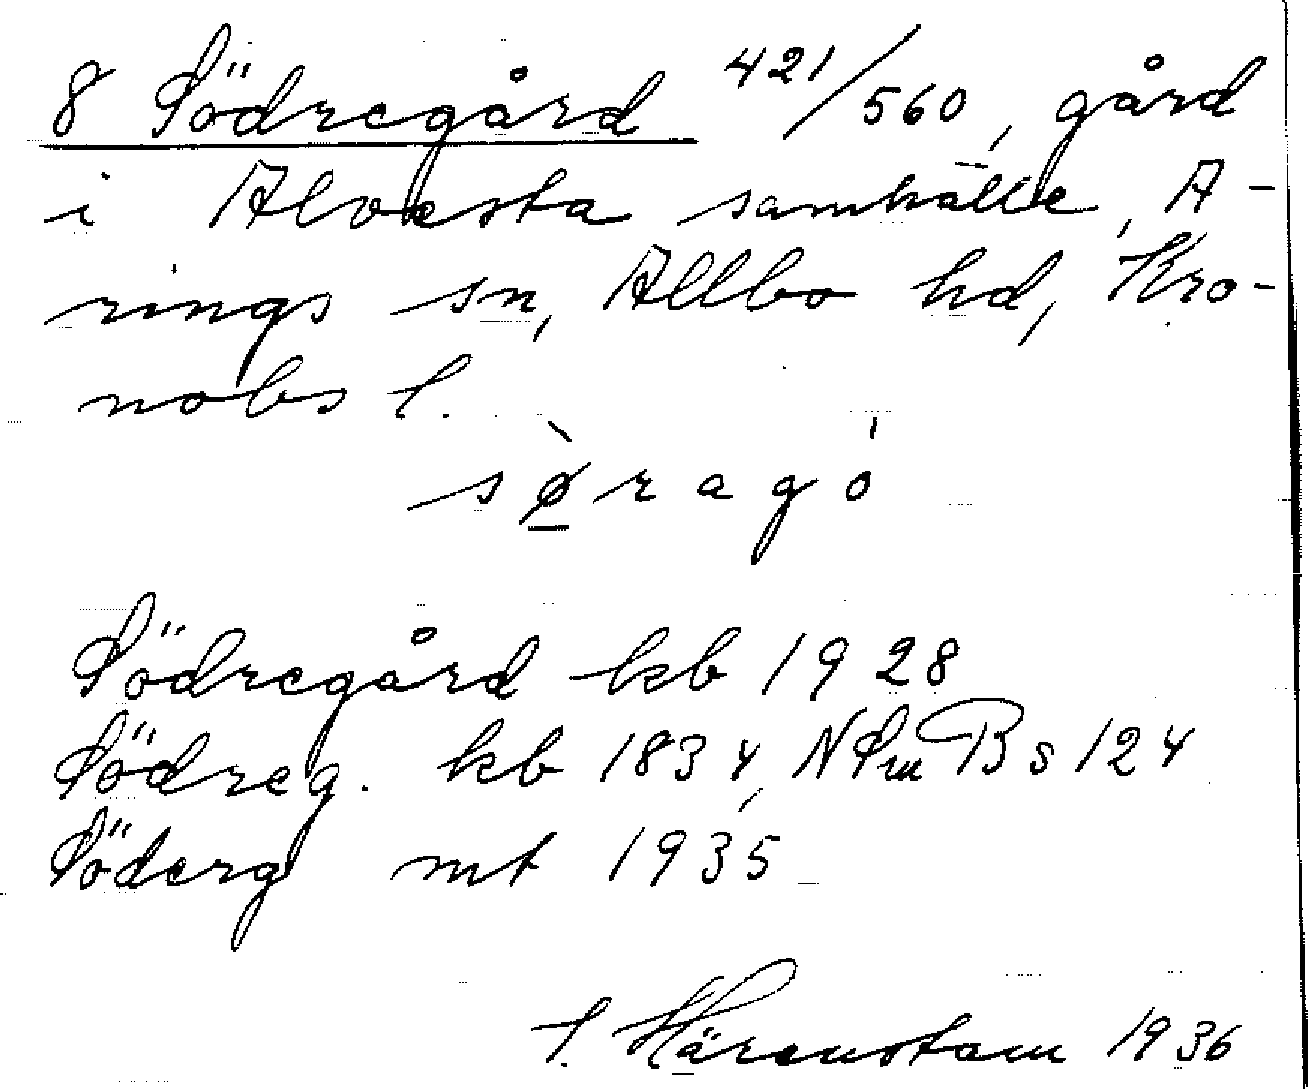 8 Södregård 421/560, gård
i Alvesta samhälle, A-
rings sn, Allbo hd, Kro-
nobs l.
sø̱̀ragó
Södregård kb 1928
Södreg. kb 1834, NSmB s 124
Söderg mt 1935
S. Härenstam 1936